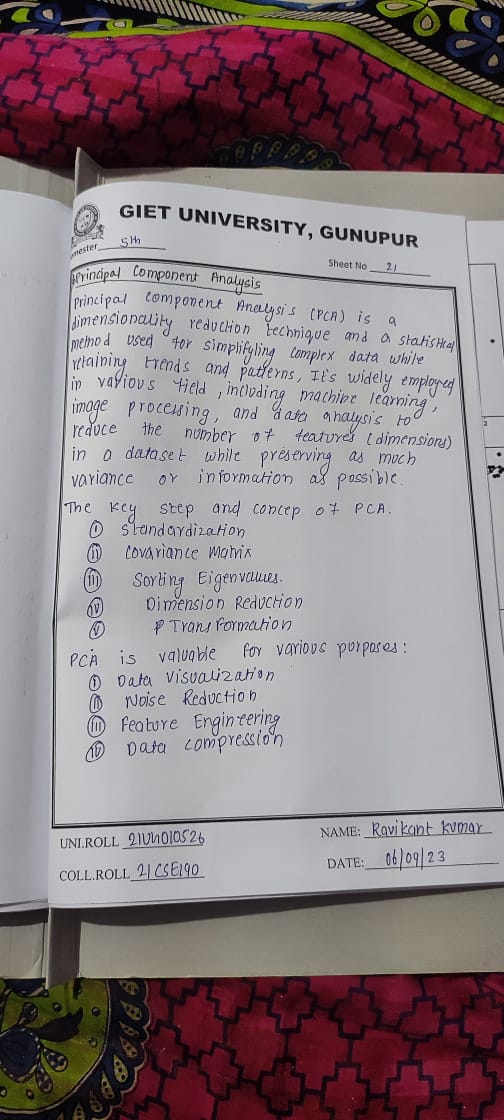 GIET UNIVERSITY, GUNUPUR
mester 5th
Sheet No 21
Principal Component Analysis
Principal Component Analysis (PCA) is a
dimensionality reduction technique and a statistical
method used for simplifyling complex data while
retaining trends and patterns, It's widely employed
in various field, including machine learning,
image processing, and data analysis to
reduce the number of features (dimensions)
in a dataset while preserving as much
variance or information as possible.
The key step and concep of PCA.
(i) Standardization
(ii) Covariance Matrix
(iii) Sorting Eigenvalues.
(iv) Dimension Reduction
(v) Transformation
PCA is valuable for various purposes:
(i) Data Visualization
(ii) Noise Reduction
(iii) Feature Engineering
(iv) Data compression
UNI.ROLL 21UG010526
NAME: Ravikant Kumar
COLL.ROLL 21CSE190
DATE: 06/09/23